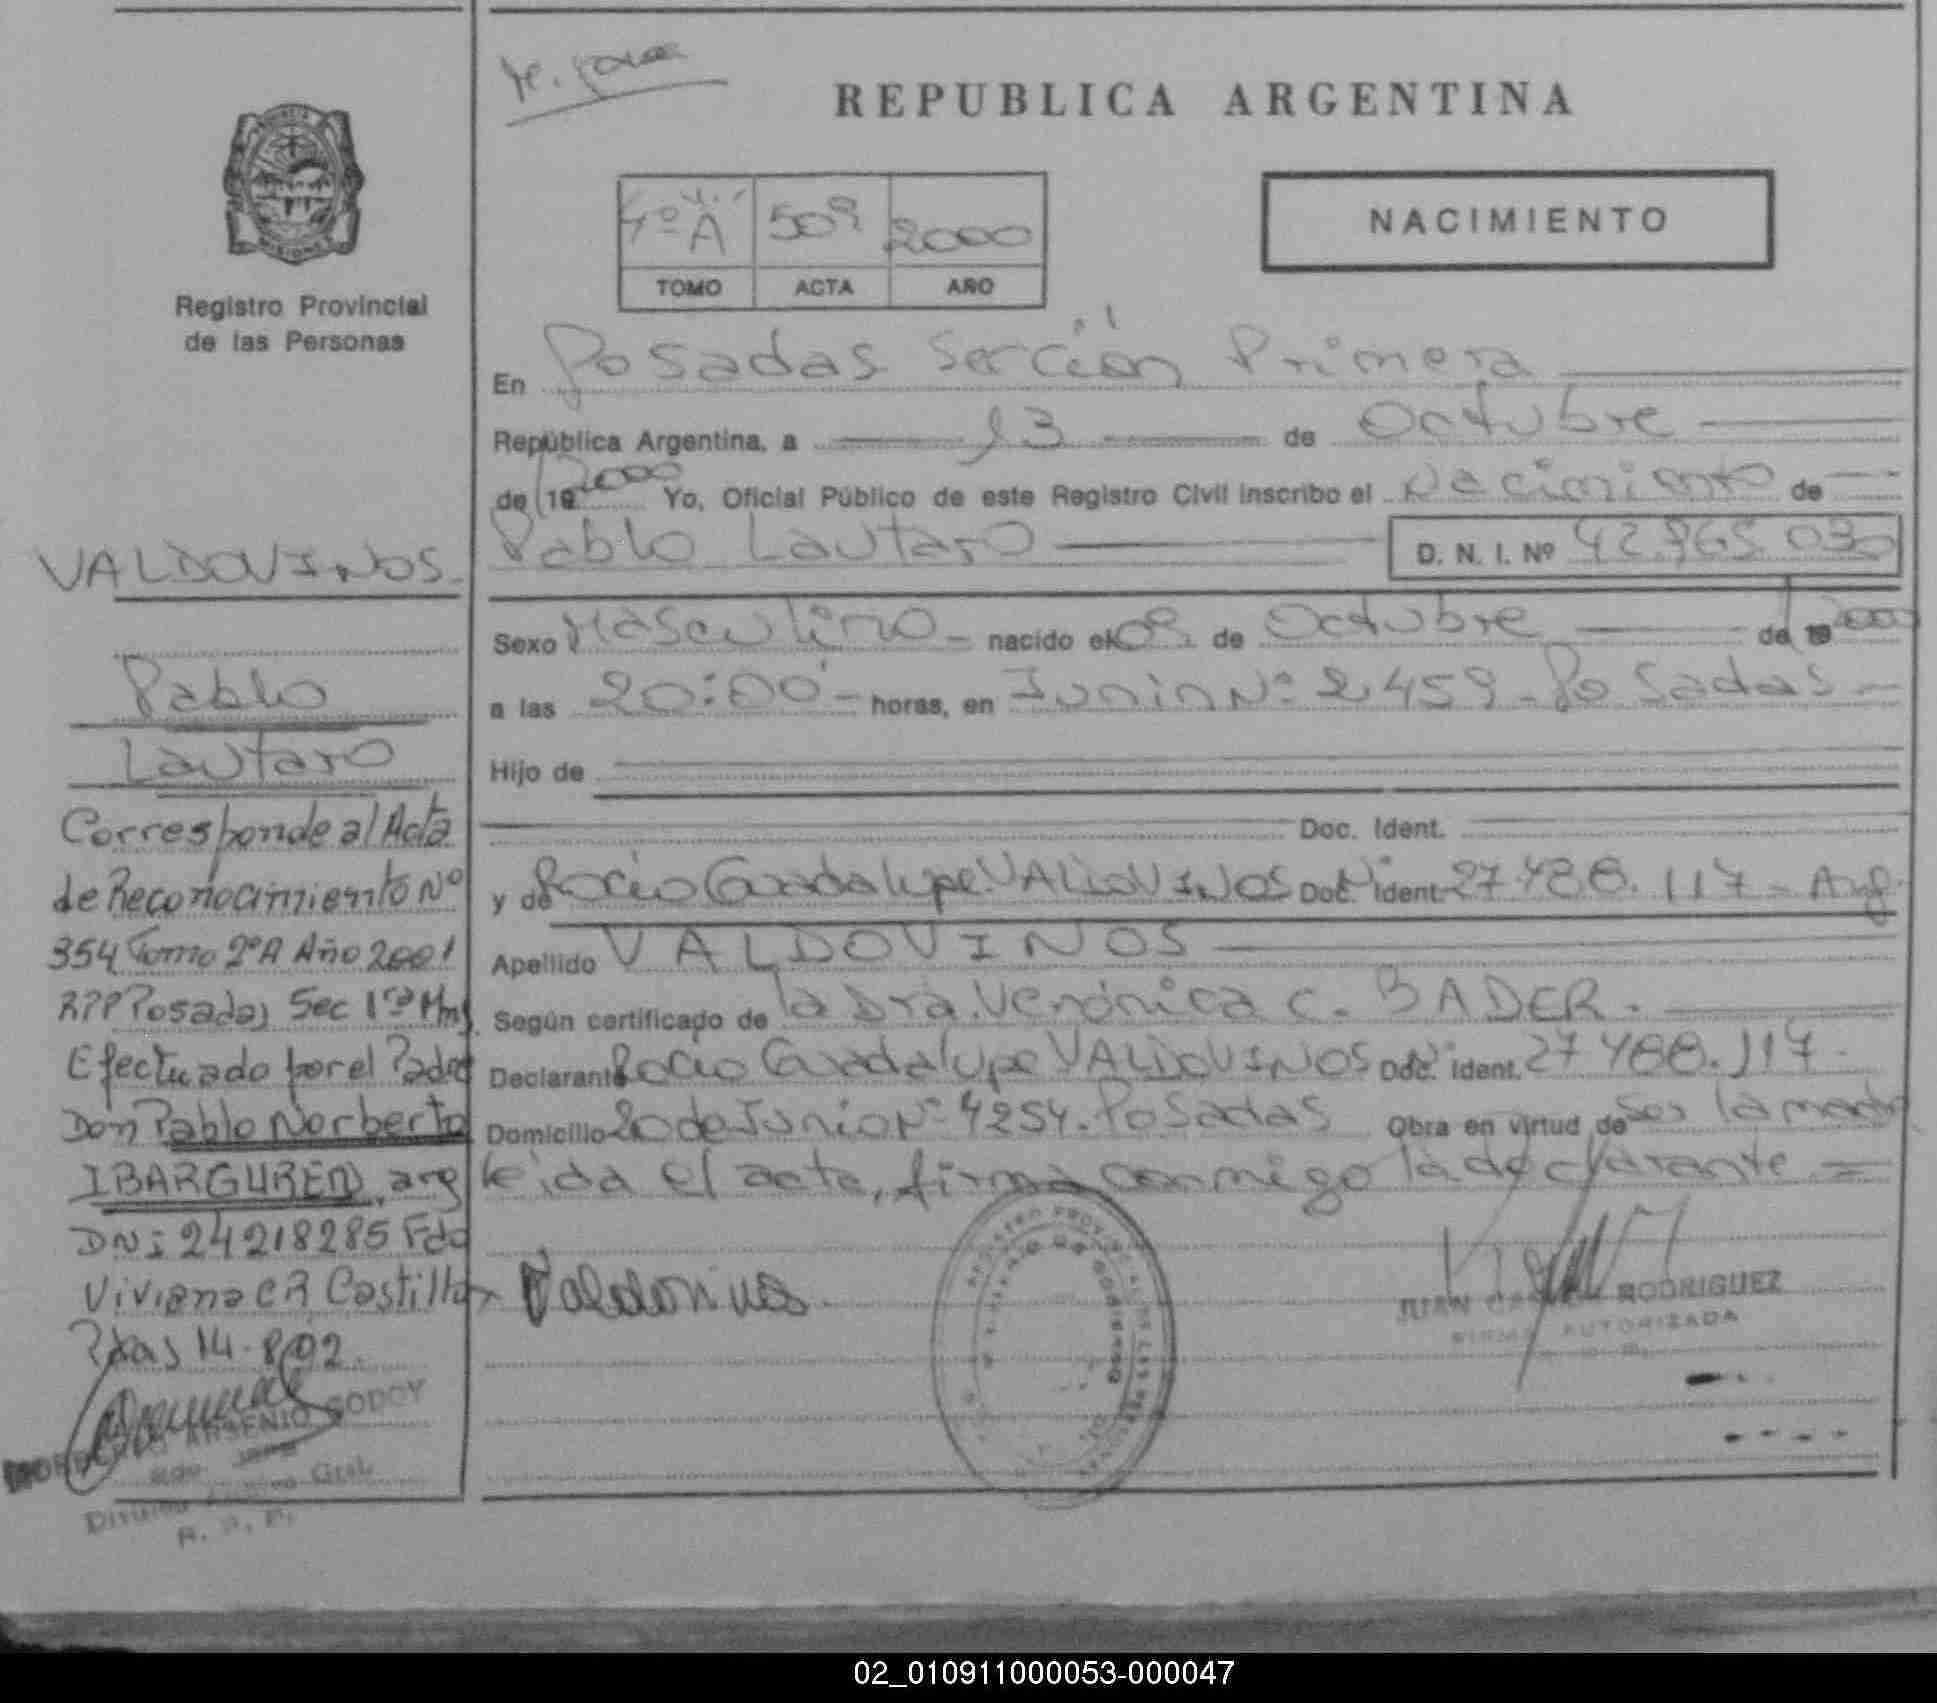 REPUBLICA ARGENTINA
4º A 509 2000
TOMO ACTA AÑO
NACIMIENTO
Registro Provincial
de las Personas
En Posadas Sección Primera
República Argentina, a 13 de Octubre
de 19 2000 Yo, Oficial Público de este Registro Civil inscribo el Nacimiento de
Pablo Lautaro D. N. I. Nº 42.765.030
Sexo Masculino - nacido el 09 de Octubre de 19 2000
a las 20:00 - horas, en Junin Nº 2459 - Posadas -
Hijo de
Doc. Ident.
y de Rocio Guadalupe VALDOVINOS Doc. Ident. 27.488.117 - Arg.
Apellido VALDOVINOS
Según certificado de la Dra. Verónica C. BADER.
Declarante Rocio Guadalupe VALDOVINOS Doc. Ident. 27.488.117.
Domicilio 20 de Junio Nº 4254. Posadas Obra en virtud de ser la madre
leida el acta, firma conmigo la declarante =
Valdovinos.
JUAN RODRIGUEZ
FIRMA AUTORIZADA
VALDOVINOS.
Pablo
Lautaro
Corresponde al Acta
de Reconocimiento Nº
354 Tomo 2ºA Año 2001
RPP Posadas Sec 1ra Mns.
Efectuado por el Padre
Don Pablo Norberto
IBARGUREN, arg
DNi 24218285 Fdo
Viviana C R Castillo
Pdas 14-8-02.
ARSENIO GODOY
R. P. P.
02_010911000053-000047